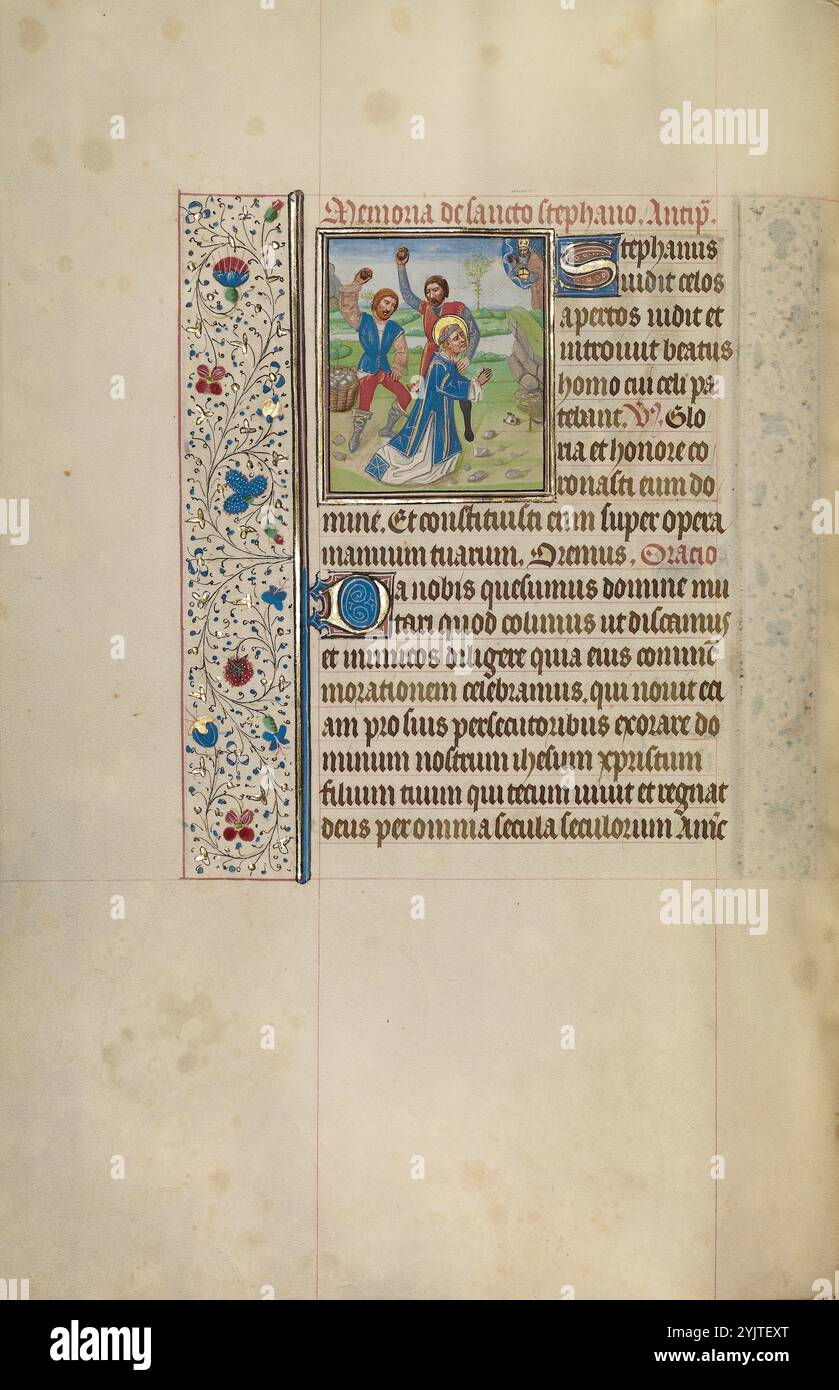 Memoria de sancto stephano. Antip̃.
Stephanus
uidit celos
apertos uidit et
introiuit beatus
homo cui celi pa
tebant. V̓. Glo
ria et honore co
ronasti eum do
mine. Et constituisti eum super opera
manuum tuarum. Oremus. Oracio
Da nobis quesumus domine mu
tari quod colimus ut discamus
et inimicos diligere quia eius commẽ
morationem celebramus. qui nouit eci
am pro suis persecutoribus exorare do
minum nostrum ihesum xpristum
filium tuum qui tecum uiuit et regnat
deus per omnia secula seculorum Amẽ
alamy
Image ID: 2YJTEXT
www.alamy.com